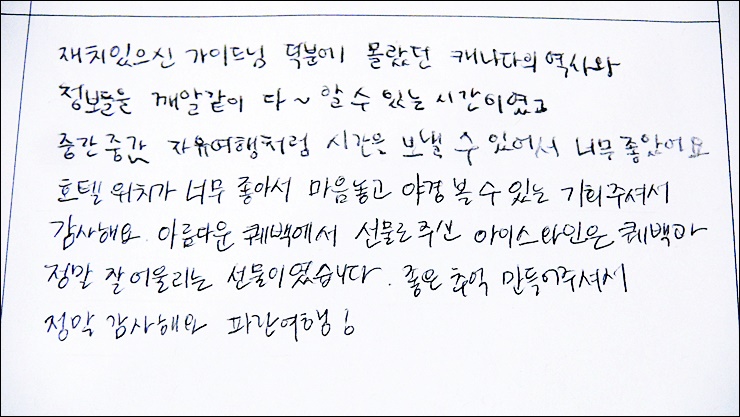 재치있으신 가이드님 덕분에 몰랐던 캐나다의 역사와
정보들을 깨알같이 다~ 알 수 있는 시간이였고
중간중간 자유여행처럼 시간을 보낼 수 있어서 너무 좋았어요
호텔 위치가 너무 좋아서 마음놓고 야경 볼 수 있는 기회주셔서
감사해요. 아름다운 퀘백에서 선물로 주신 아이스와인은 퀘백과
정말 잘 어울리는 선물이였습니다. 좋은 추억 만들어주셔서
정말 감사해요 파란여행!